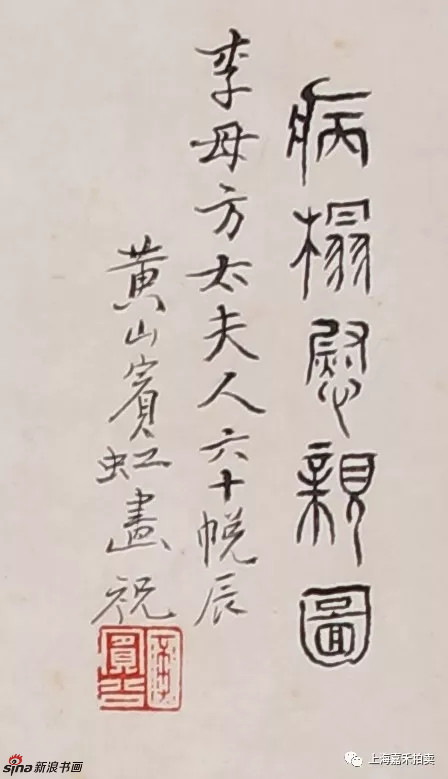 病榻慰親圖
李母方太夫人六十帨辰
黄山賓虹畫祝
sina新浪书画
上海嘉禾拍卖